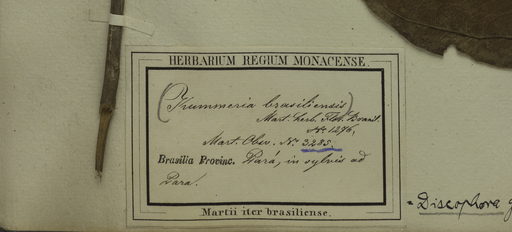 HERBARIUM REGIUM MONACENSE.
(Kummeria brasiliensis)
Mart. herb. Flor. Brasil.
No. 1296.
Mart. Obs. No. 3285.
Brasilia Provinc. Pará, in sylvis ad
Para.
Martii iter brasiliense.
= Discophora g